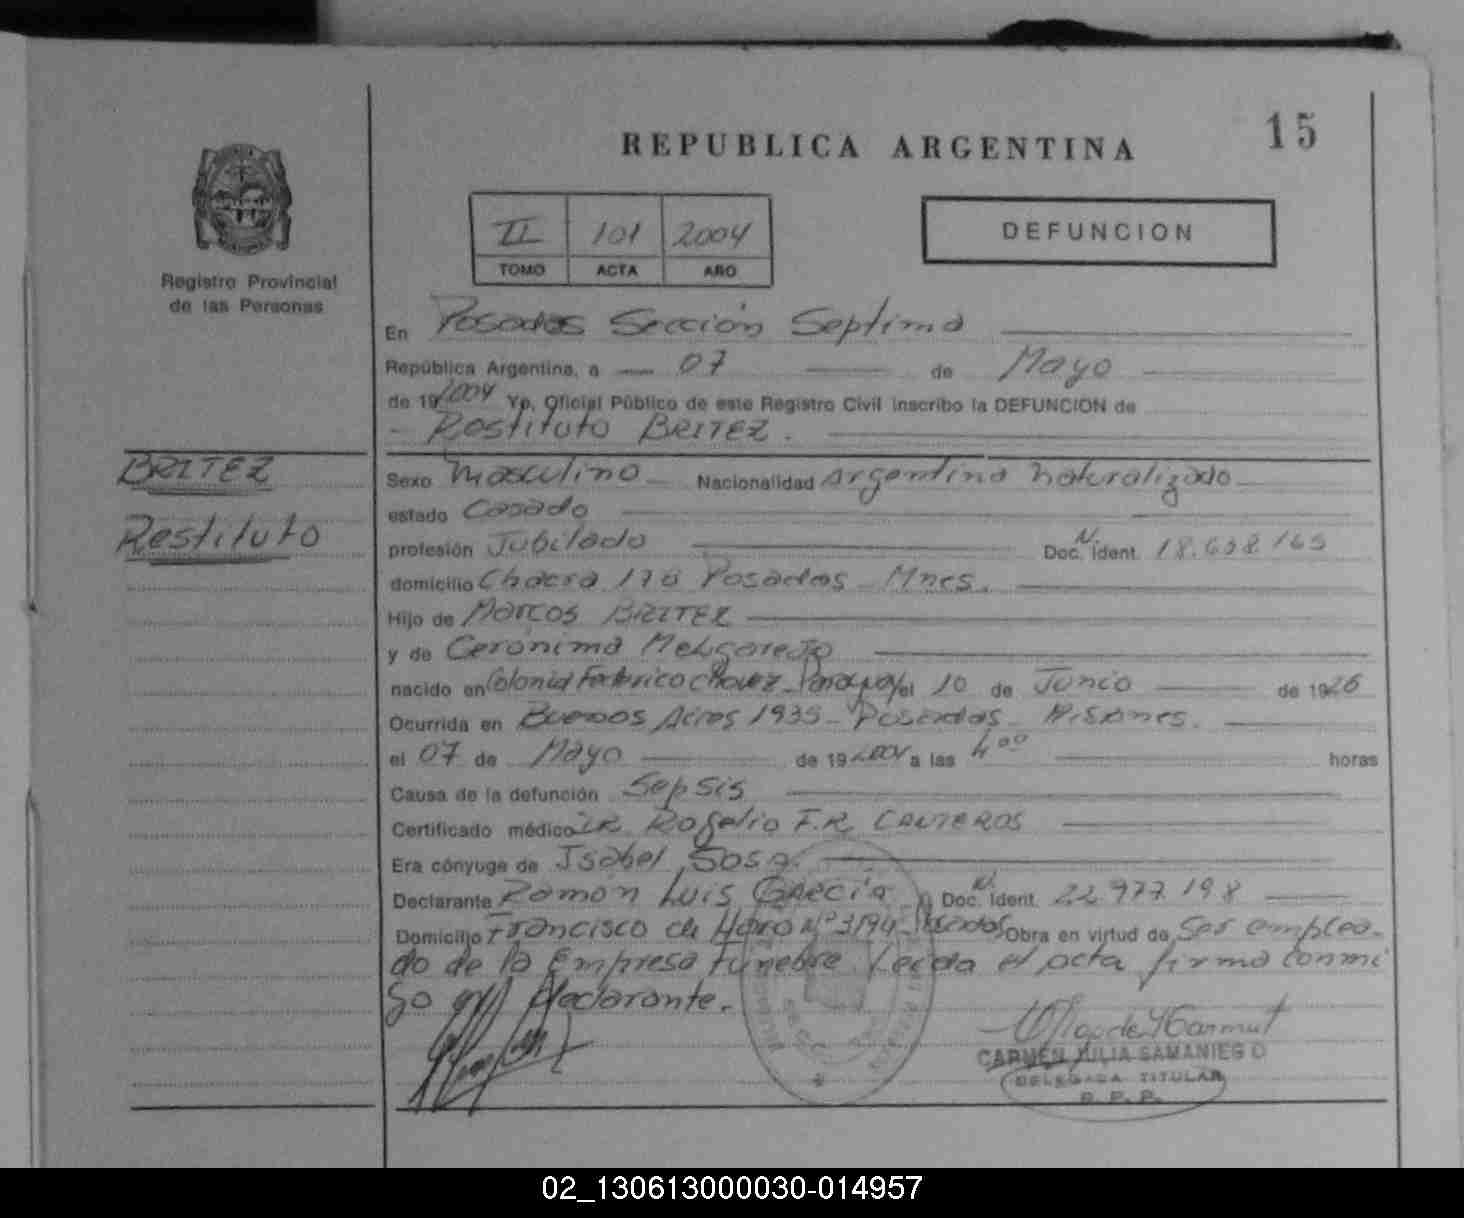 15
REPUBLICA ARGENTINA
II 101 2004
TOMO ACTA AÑO
DEFUNCION
Registro Provincial
de las Personas
En Posadas Sección Septima
República Argentina, a 07 de Mayo
de 19 2004 Yo, Oficial Público de este Registro Civil inscribo la DEFUNCION de
Restituto BRITEZ.
BRITEZ
Restituto
Sexo Masculino Nacionalidad Argentino Naturalizado
estado Casado
profesión Jubilado Doc. N. Ident. 18.698.165
domicilio Chacra 178 Posadas - Mnes.
Hijo de Marcos BRITEZ
y de Gerónima Melgarejo
nacido en Colonia Federico Chavez - Paraguay el 10 de Junio de 1926
Ocurrida en Buenos Aires 1935 - Posadas - Misiones.
el 07 de Mayo de 19 2004 a las 4:00 horas
Causa de la defunción Sepsis
Certificado médico DR. Rogelio F.R. CANTEROS
Era cónyuge de Isabel Sosa.
Declarante Ramon Luis García Doc. N. Ident. 22.977.198
Domicilio Francisco de Haro Nº 3194 - Posadas Obra en virtud de Ser emplea-
do de la Empresa Funebre. Leida el acta firma conmi
go el declarante.
CARMEN JULIA SAMANIEGO
DELEGADA TITULAR
R. P. P.
02_130613000030-014957